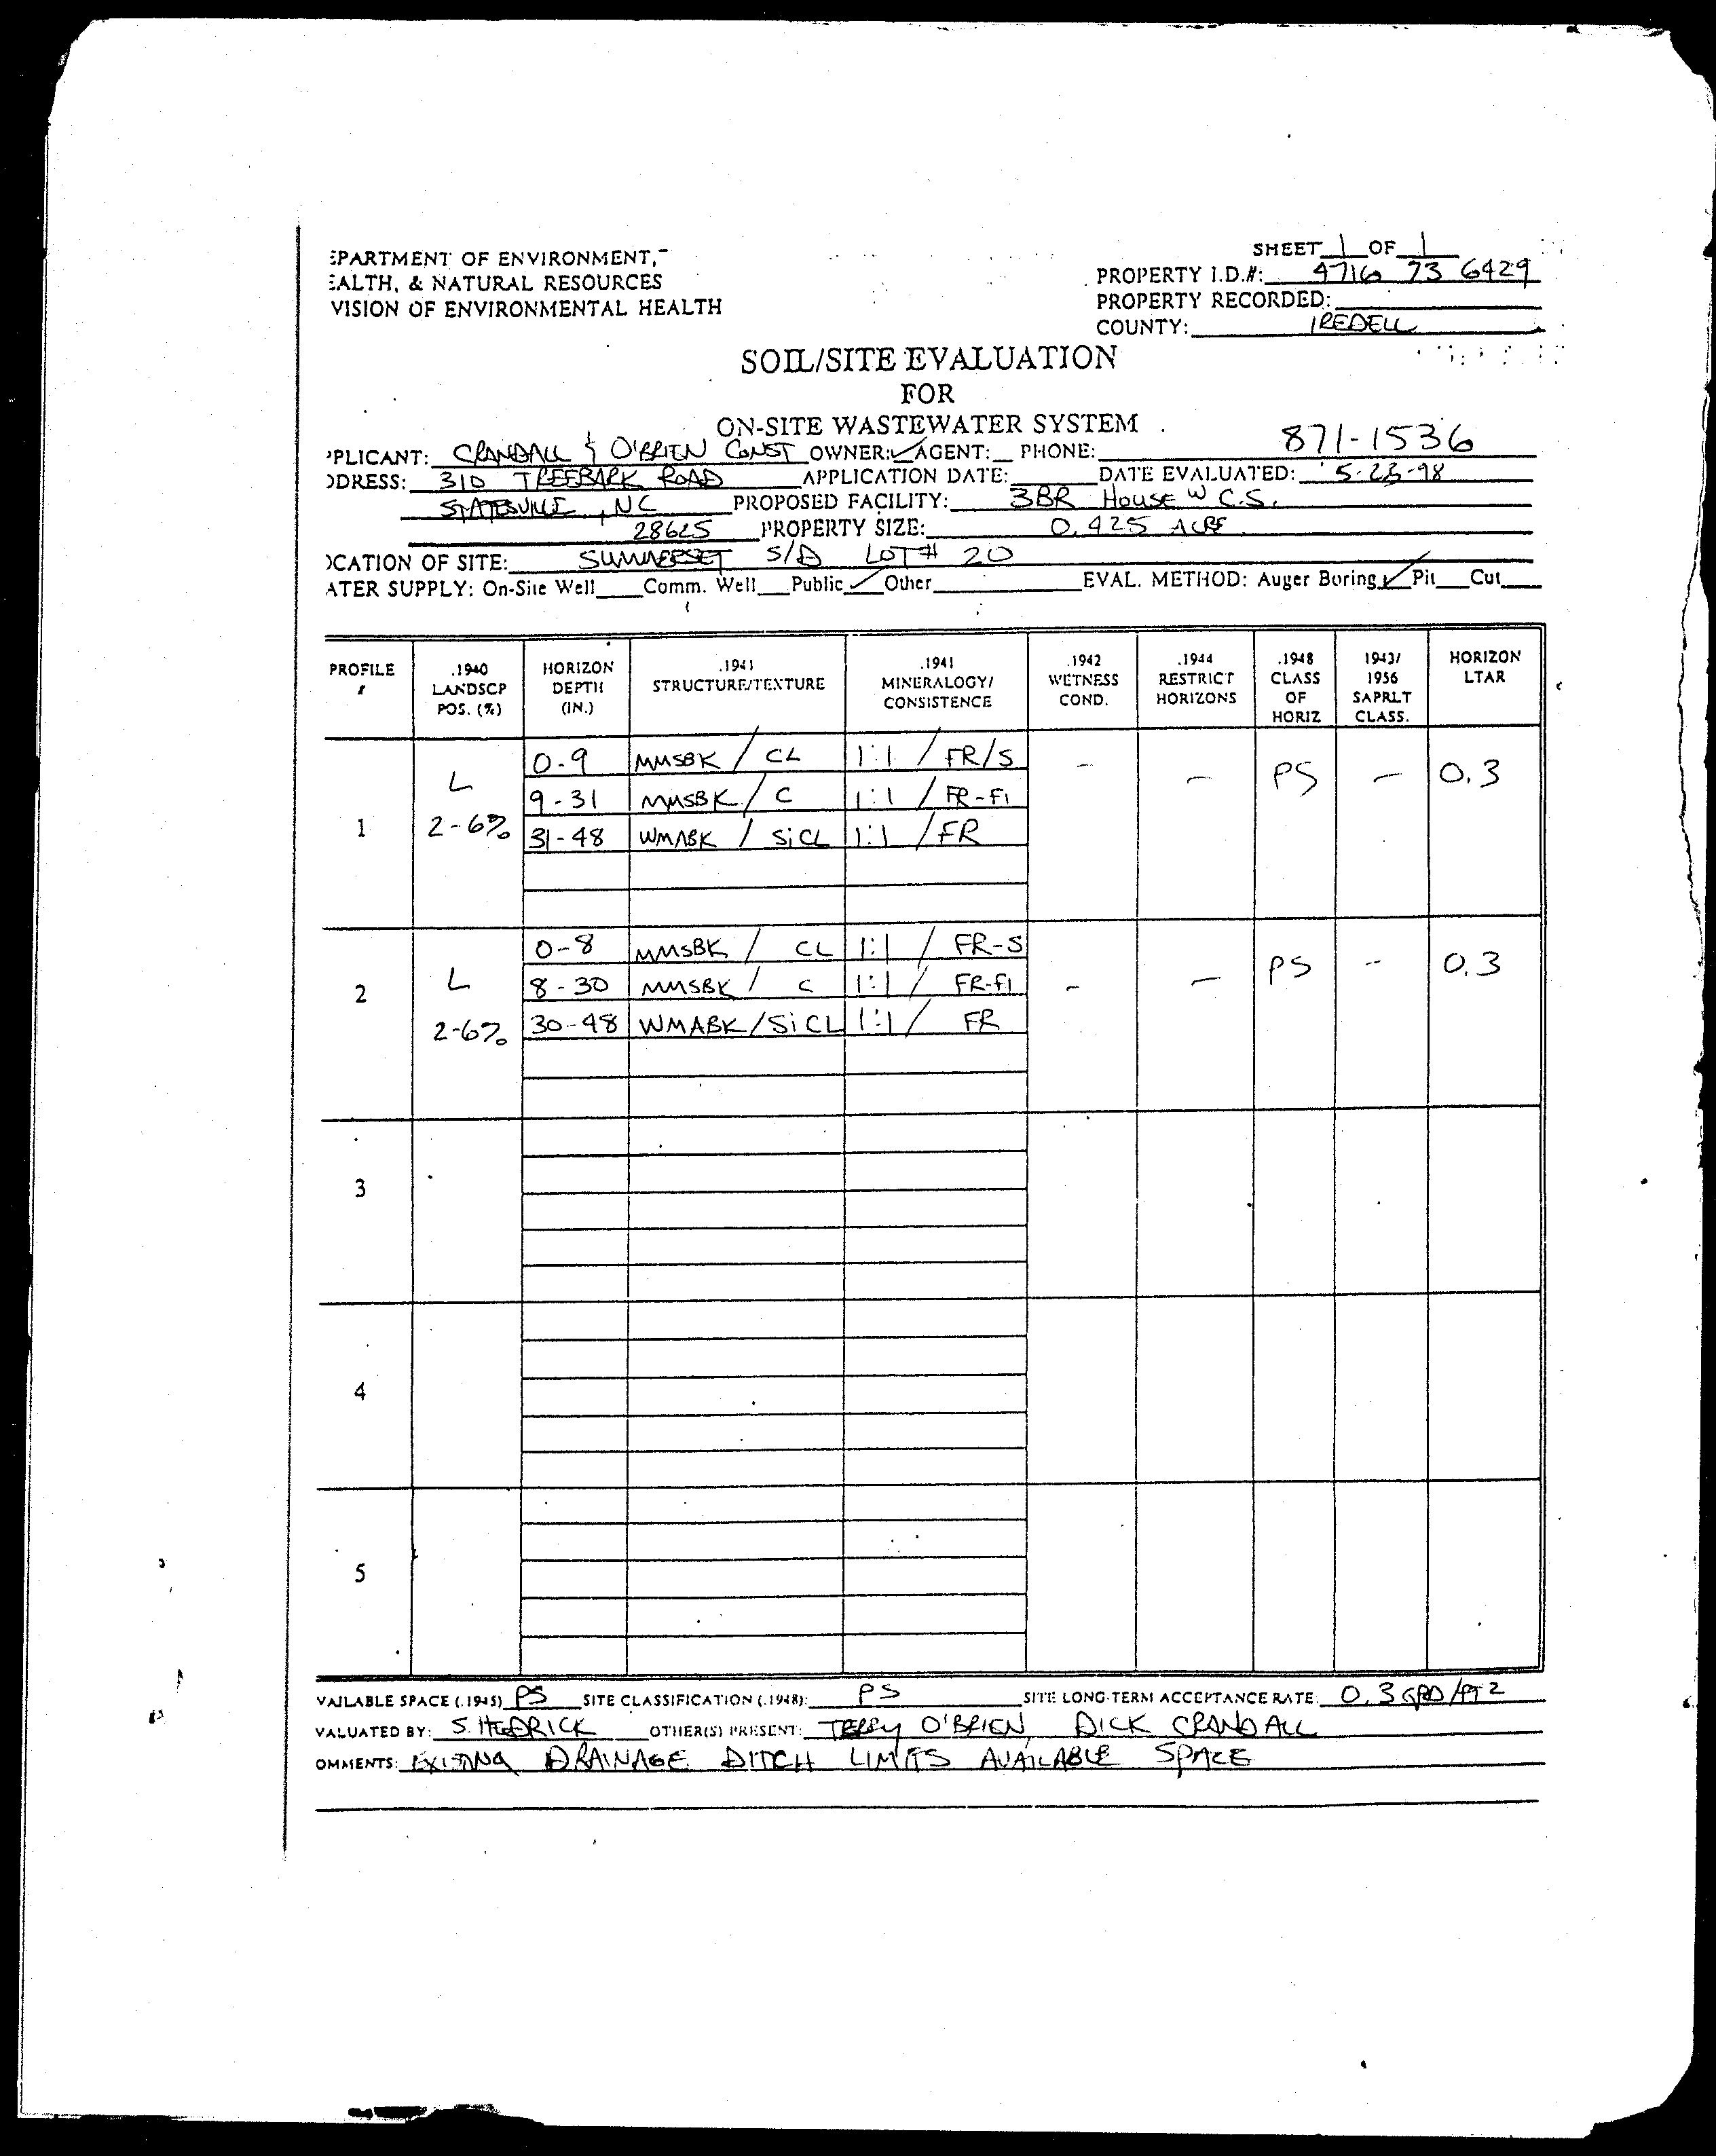 EPARTMENT OF ENVIRONMENT,
EALTH, & NATURAL RESOURCES
VISION OF ENVIRONMENTAL HEALTH
SHEET 1 OF 1
PROPERTY I.D.#: 4716 73 6429
PROPERTY RECORDED:
COUNTY: IREDELL
SOIL/SITE EVALUATION
FOR
ON-SITE WASTEWATER SYSTEM
PPLICANT: CRANDALL & O'BRIEN CONST OWNER: ✓ AGENT: PHONE: 871-1536
DDRESS: 310 TREEBARK ROAD APPLICATION DATE: DATE EVALUATED: 5-23-98
STATESVILLE, NC PROPOSED FACILITY: 3BR HOUSE W C.S.
28625 PROPERTY SIZE: 0.425 ACRE
OCATION OF SITE: S/D LOT # 20
ATER SUPPLY: On-Site Well Comm. Well Public ✓ Other EVAL. METHOD: Auger Boring ✓ Pit Cut
PROFILE # .1940 LANDSCP POS. (%) HORIZON DEPTH (IN.) .1941 STRUCTURE/TEXTURE .1941 MINERALOGY/ CONSISTENCE .1942 WETNESS COND. .1944 RESTRICT HORIZONS .1948 CLASS OF HORIZ 1943/ 1956 SAPRLT CLASS. HORIZON LTAR
1 L 2-6% 0-9 MMSBK / CL 1:1 / FR/S - - PS - 0.3
9-31 MMSBK / C 1:1 / FR-FI
31-48 WMABK / SiCL 1:1 / FR
2 L 2-6% 0-8 MMSBK / CL 1:1 / FR-S - - PS - 0.3
8-30 MMSBK / C 1:1 / FR-FI
30-48 WMABK / SiCL 1:1 / FR
3
4
5
VAILABLE SPACE (.1945) PS SITE CLASSIFICATION (.1948): PS SITE LONG-TERM ACCEPTANCE RATE: 0.3 GPD/FT2
VALUATED BY: S. HEDRICK OTHER(S) PRESENT: TERRY O'BRIEN DICK CRANDALL
OMMENTS: EXISTING DRAINAGE DITCH LIMITS AVAILABLE SPACE